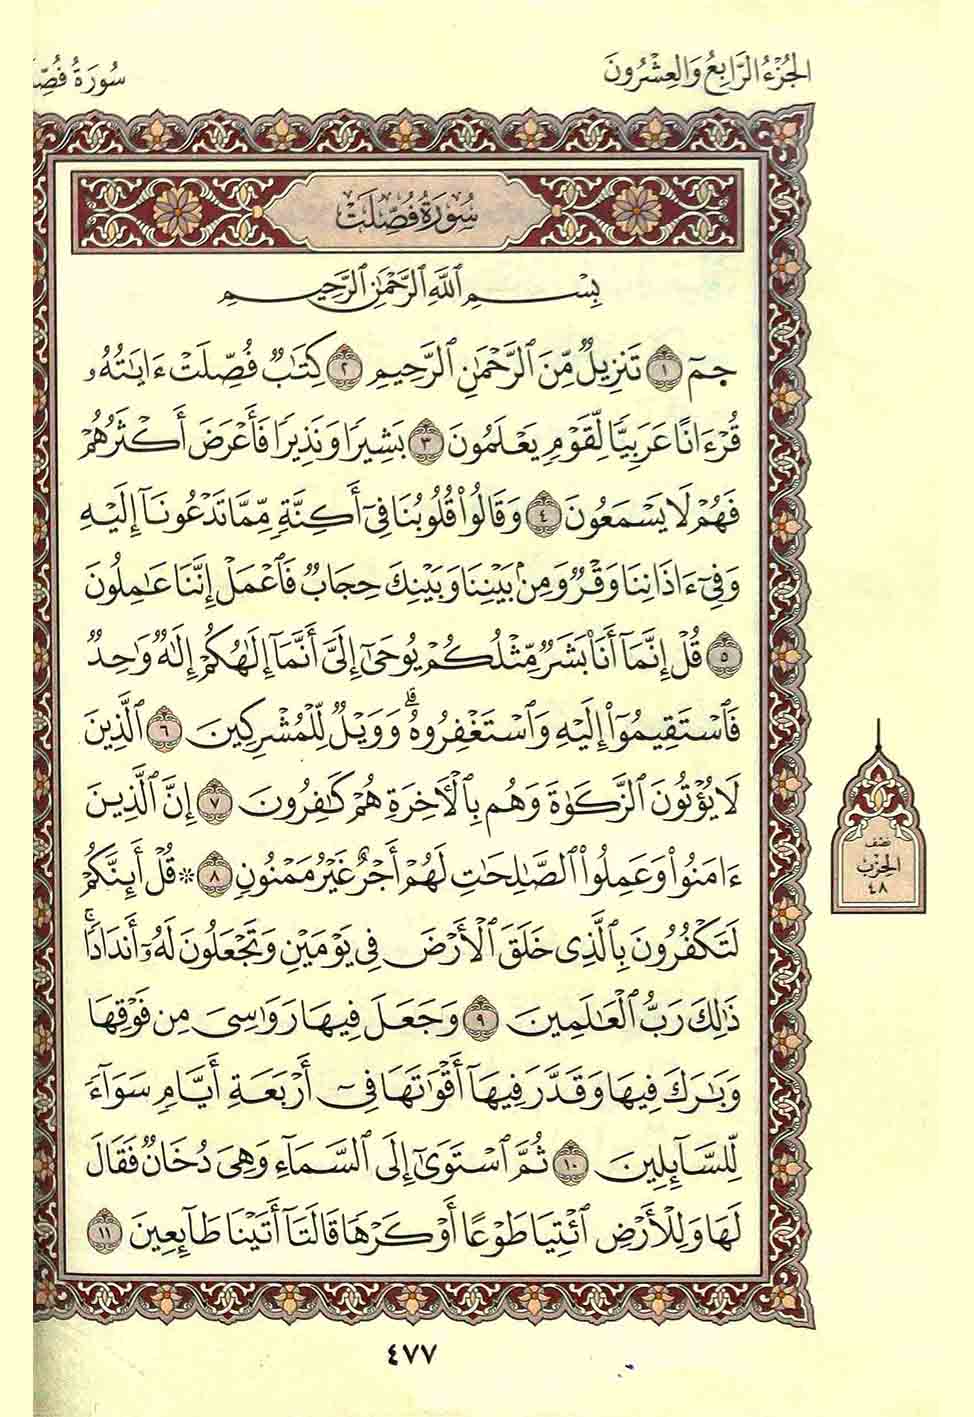 الجُزْءُ الرَّابِعُ وَالعِشْرُونَ
سُورَةُ فُصِّلَ
سُورَةُ فُصِّلَتْ
بِسْمِ ٱللَّهِ ٱلرَّحْمَٰنِ ٱلرَّحِيمِ
حمٓ ١ تَنزِيلٌ مِّنَ ٱلرَّحْمَٰنِ ٱلرَّحِيمِ ٢ كِتَٰبٌ فُصِّلَتْ ءَايَٰتُهُۥ
قُرْءَانًا عَرَبِيًّا لِّقَوْمٍ يَعْلَمُونَ ٣ بَشِيرًا وَنَذِيرًا فَأَعْرَضَ أَكْثَرُهُمْ
فَهُمْ لَا يَسْمَعُونَ ٤ وَقَالُوا۟ قُلُوبُنَا فِىٓ أَكِنَّةٍ مِّمَّا تَدْعُونَآ إِلَيْهِ
وَفِىٓ ءَاذَانِنَا وَقْرٌ وَمِنۢ بَيْنِنَا وَبَيْنِكَ حِجَابٌ فَٱعْمَلْ إِنَّنَا عَٰمِلُونَ
٥ قُلْ إِنَّمَآ أَنَا۠ بَشَرٌ مِّثْلُكُمْ يُوحَىٰٓ إِلَىَّ أَنَّمَآ إِلَٰهُكُمْ إِلَٰهٌ وَٰحِدٌ
فَٱسْتَقِيمُوٓا۟ إِلَيْهِ وَٱسْتَغْفِرُوهُ ۗ وَوَيْلٌ لِّلْمُشْرِكِينَ ٦ ٱلَّذِينَ
لَا يُؤْتُونَ ٱلزَّكَوٰةَ وَهُم بِٱلْأَخِرَةِ هُمْ كَٰفِرُونَ ٧ إِنَّ ٱلَّذِينَ
ءَامَنُوا۟ وَعَمِلُوا۟ ٱلصَّٰلِحَٰتِ لَهُمْ أَجْرٌ غَيْرُ مَمْنُونٍ ٨ ۞ قُلْ أَئِنَّكُمْ
لَتَكْفُرُونَ بِٱلَّذِى خَلَقَ ٱلْأَرْضَ فِى يَوْمَيْنِ وَتَجْعَلُونَ لَهُۥٓ أَندَادًا ۚ
ذَٰلِكَ رَبُّ ٱلْعَٰلَمِينَ ٩ وَجَعَلَ فِيهَا رَوَٰسِىَ مِن فَوْقِهَا
وَبَٰرَكَ فِيهَا وَقَدَّرَ فِيهَآ أَقْوَٰتَهَا فِىٓ أَرْبَعَةِ أَيَّامٍ سَوَآءً
لِّلسَّآئِلِينَ ١٠ ثُمَّ ٱسْتَوَىٰٓ إِلَى ٱلسَّمَآءِ وَهِىَ دُخَانٌ فَقَالَ
لَهَا وَلِلْأَرْضِ ٱئْتِيَا طَوْعًا أَوْ كَرْهًا قَالَتَآ أَتَيْنَا طَآئِعِينَ ١١
نصف
الحزب
٤٨
٤٧٧